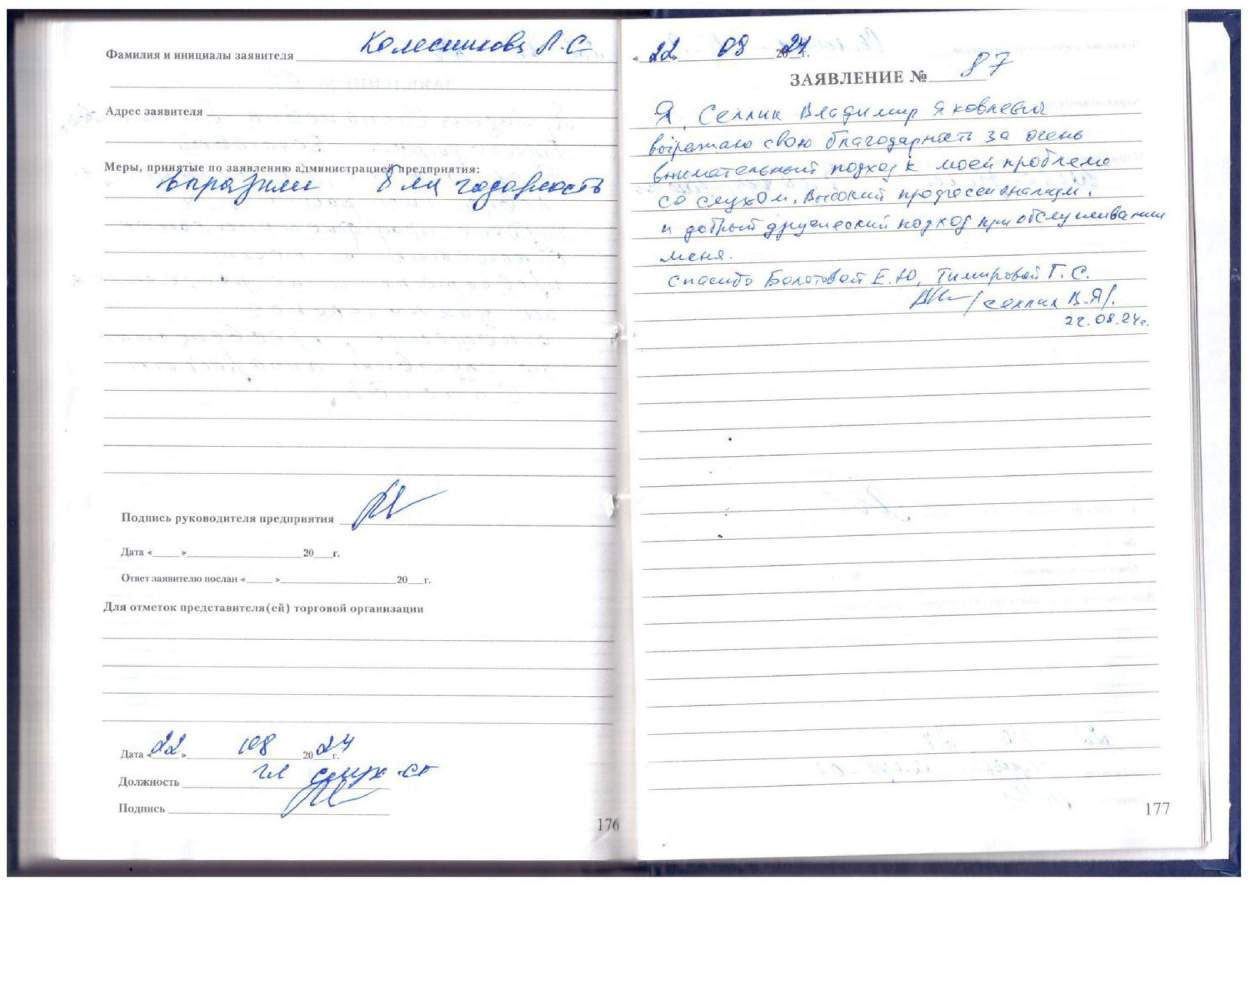 Фамилия и инициалы заявителя Колесникова Л. С
Адрес заявителя
Меры, принятые по заявлению администрацией предприятия:
выразили благодарность
Подпись руководителя предприятия
Дата « » 20 г.
Ответ заявителю послан « » 20 г.
Для отметок представителя(ей) торговой организации
Дата «22» 08 2024 г.
Должность гл
Подпись
176
« 22 08 2024 г.
ЗАЯВЛЕНИЕ № 87
Я, Селлик Владимир Яковлевич
выражаю свою благодарность за очень
внимательный подход к моей проблеме
со слухом. Высокий профессионализм,
и добрый дружеский подход при обслуживании
меня.
Спасибо Болотовой Е.Ю, Тимировой Г. С.
/Селлик В.Я/.
22.08.24г.
177